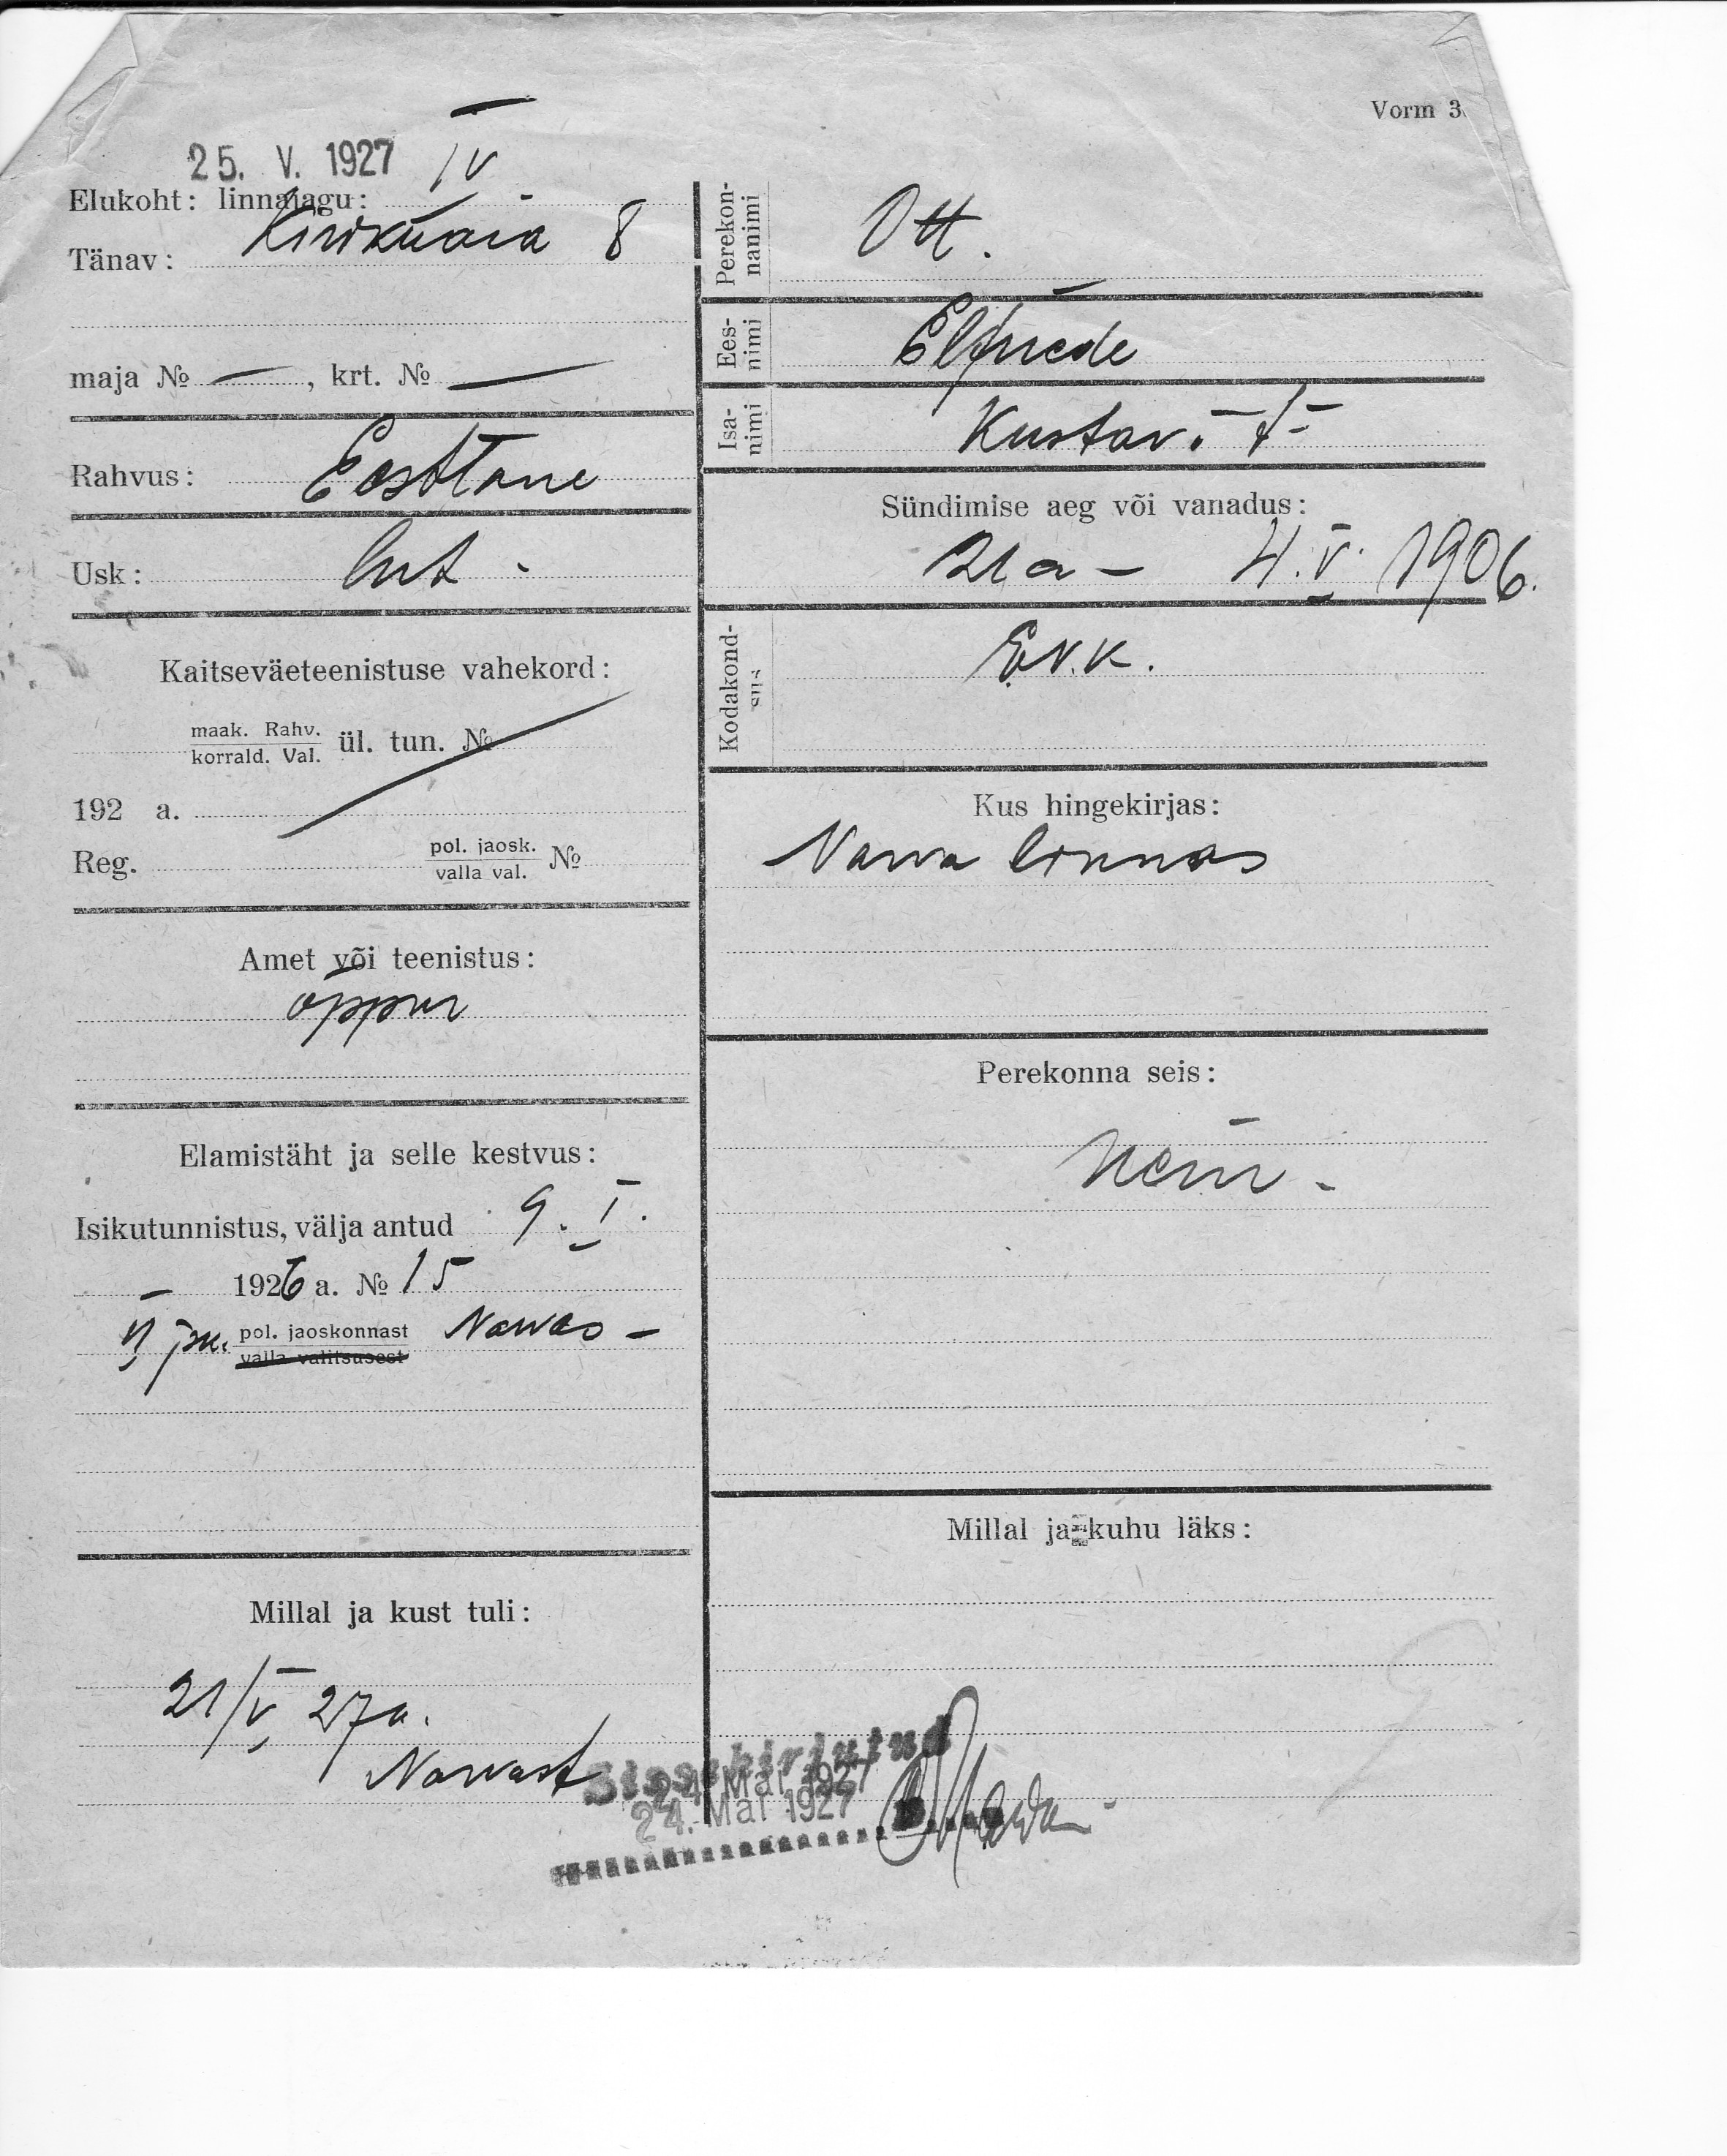 Vorm 3.
25. V. 1927 IV
Elukoht: linnajagu:
Tänav: Kirikuaia 8
maja № — , krt. № —
Rahvus: Eestlane
Usk: lut -
Kaitseväeteenistuse vahekord:
maak. Rahv.
korrald. Val. ül. tun. №
192 a.
Reg. pol. jaosk.
valla val. №
Amet või teenistus:
õppur
Elamistäht ja selle kestvus:
Isikutunnistus, välja antud 9. I.
1926 a. № 15
pol. jaoskonnast Narvas -
valla valitsusest
Millal ja kust tuli:
21/V 27a.
Narvast
Perekon-
nanimi
Ott.
Ees-
nimi
Elfriede
Isa-
nimi
Kustav. t-
Sündimise aeg või vanadus:
21 a - 4. V. 1906.
Kodakond-
sus
E.V.K.
Kus hingekirjas:
Narva linnas
Perekonna seis:
Neiu -
Millal ja kuhu läks:
Sissekirjutud
24. Mai 1927
24. Mai 1927